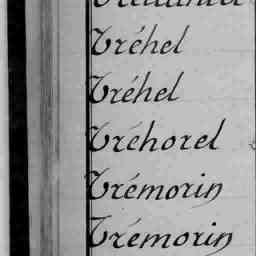 Tréhel
Tréhel
Tréhorel
Trémorin
Trémorin